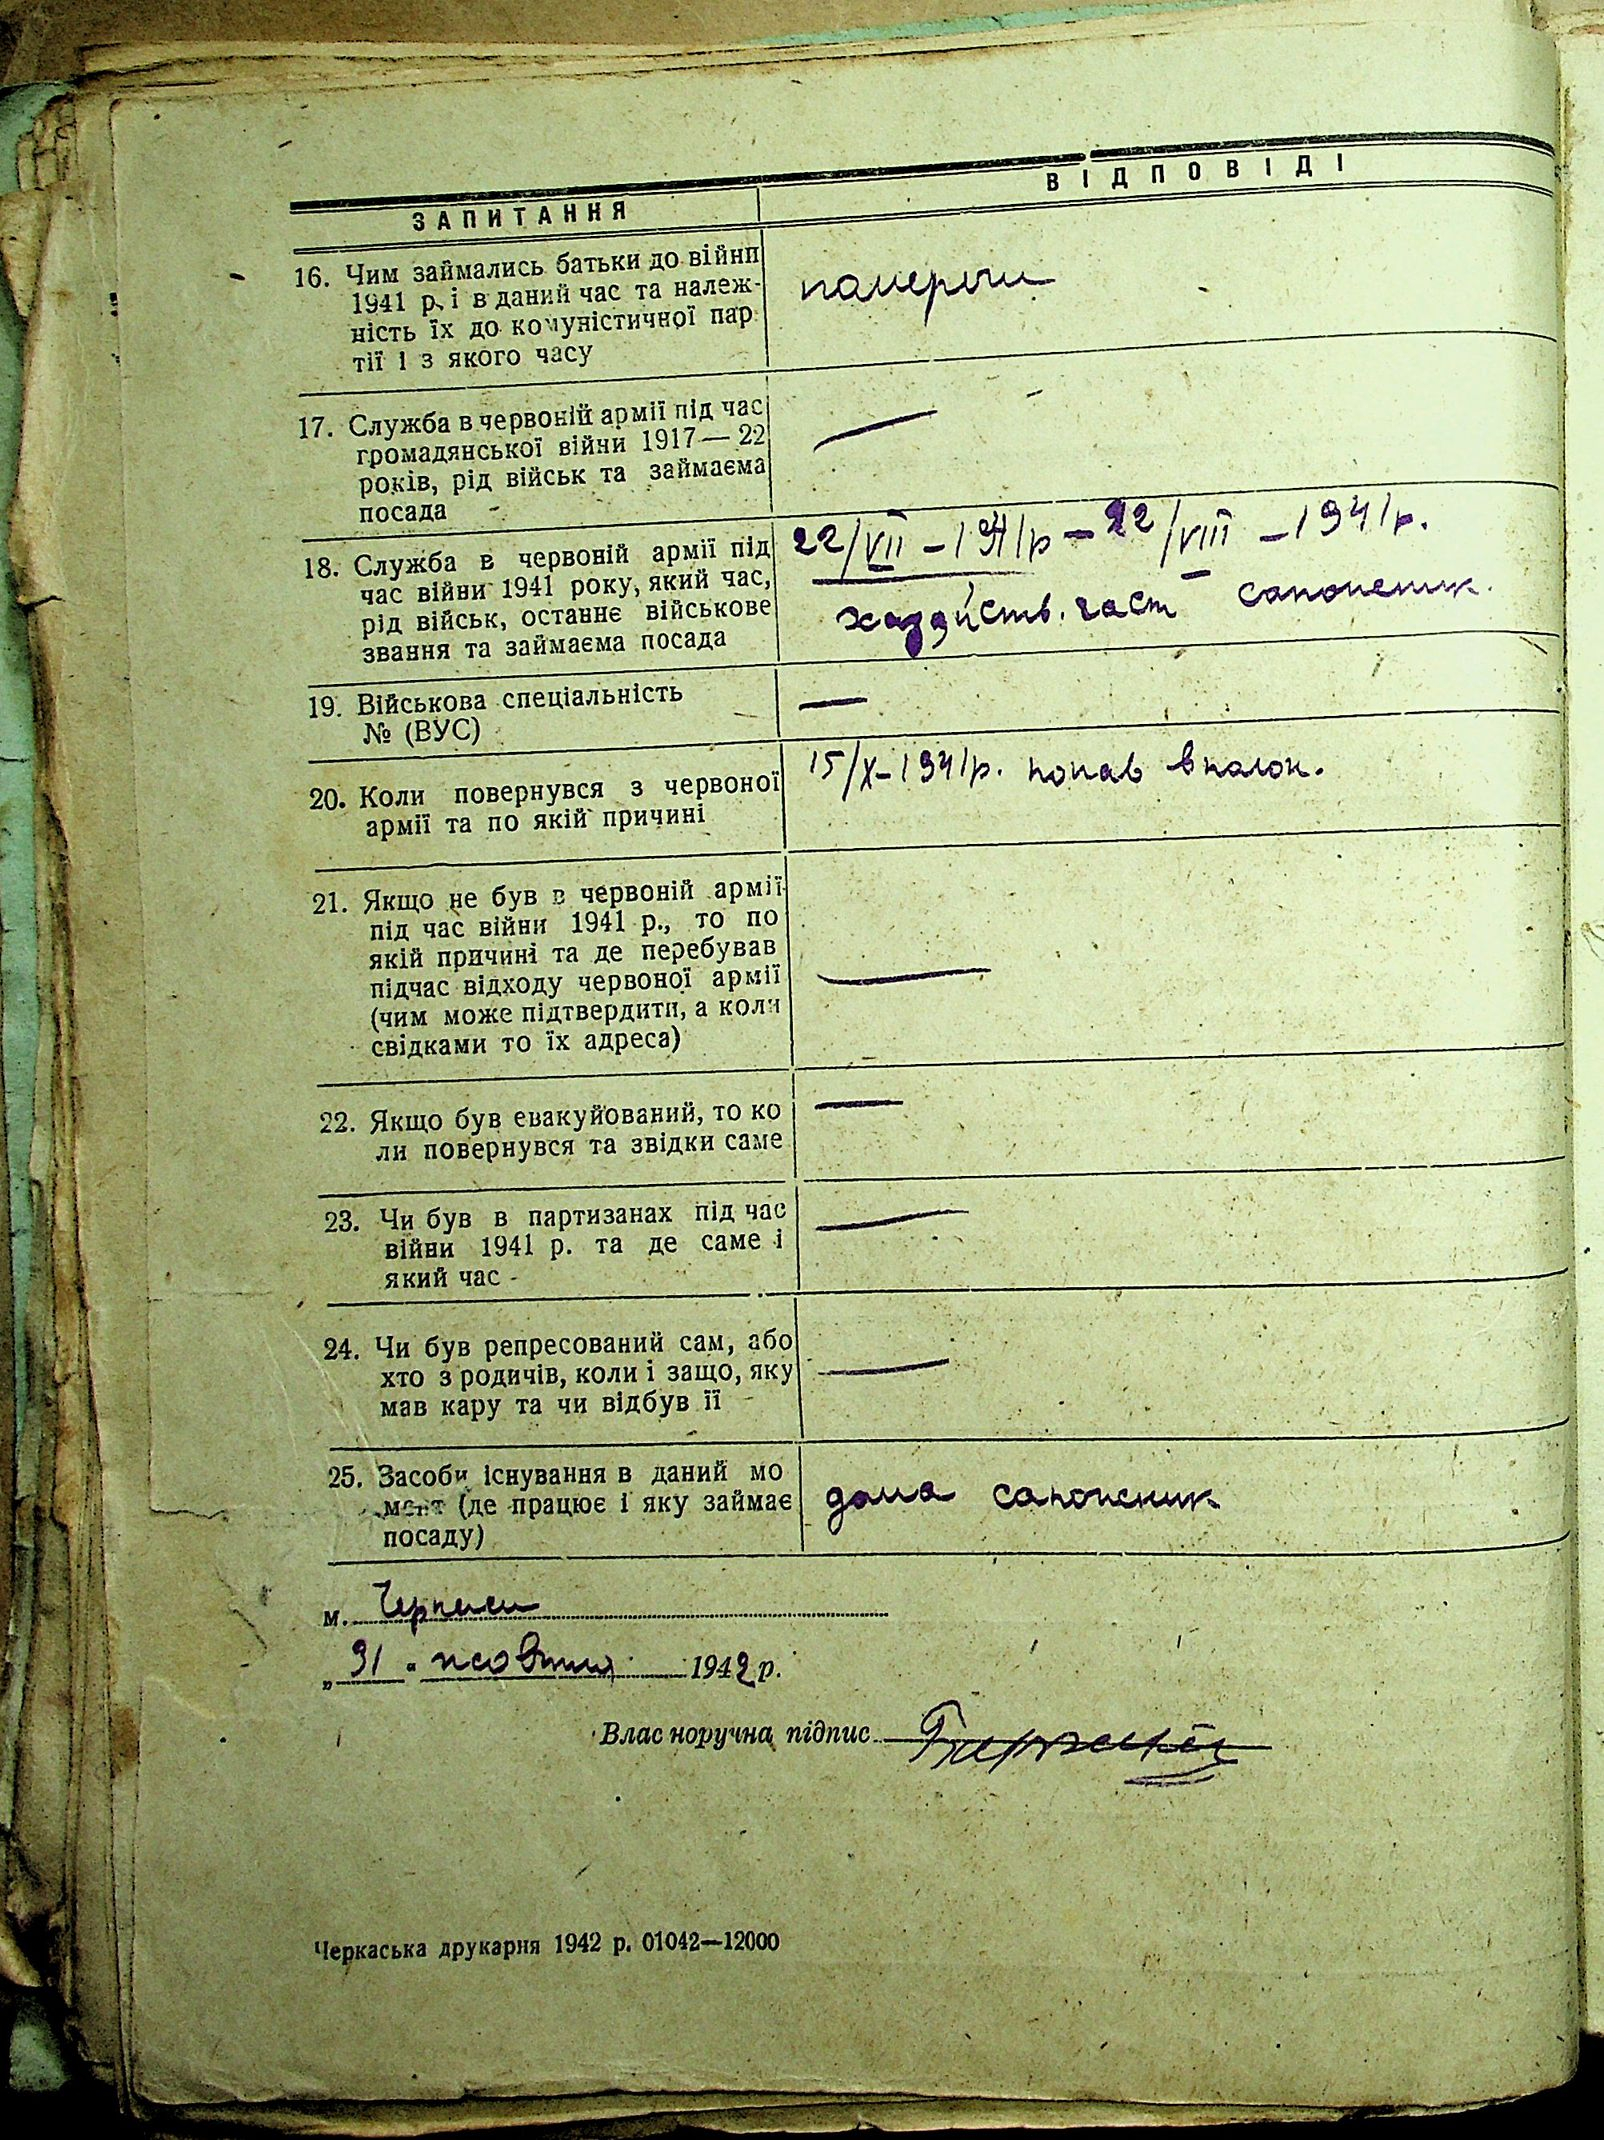 ЗАПИТАННЯ
ВІДПОВІДІ
16. Чим займались батьки до війни
1941 р. і в даний час та належ-
ність їх до комуністичної пар
тії і з якого часу
померли
17. Служба в червоній армії під час
громадянської війни 1917—22
років, рід військ та займаєма
посада
18. Служба в червоній армії під
час війни 1941 року, який час,
рід військ, останнє військове
звання та займаєма посада
22/VII – 1941 р – 22/VIII – 1941 р.
хозяйств. част сапожник.
19. Військова спеціальність
№ (ВУС)
20. Коли повернувся з червоної
армії та по якій причині
15/X – 1941 р. попав в полон.
21. Якщо не був в червоній армії
під час війни 1941 р., то по
якій причині та де перебував
підчас відходу червоної армії
(чим може підтвердити, а коли
свідками то їх адреса)
22. Якщо був евакуйований, то ко
ли повернувся та звідки саме
23. Чи був в партизанах під час
війни 1941 р. та де саме і
який час
24. Чи був репресований сам, або
хто з родичів, коли і защо, яку
мав кару та чи відбув її
25. Засоби існування в даний мо
мент (де працює і яку займає
посаду)
дома сапожник
м. Черкаси
„31" жовтня 1942 р.
Власноручна підпис
Черкаська друкарня 1942 р. 01042—12000